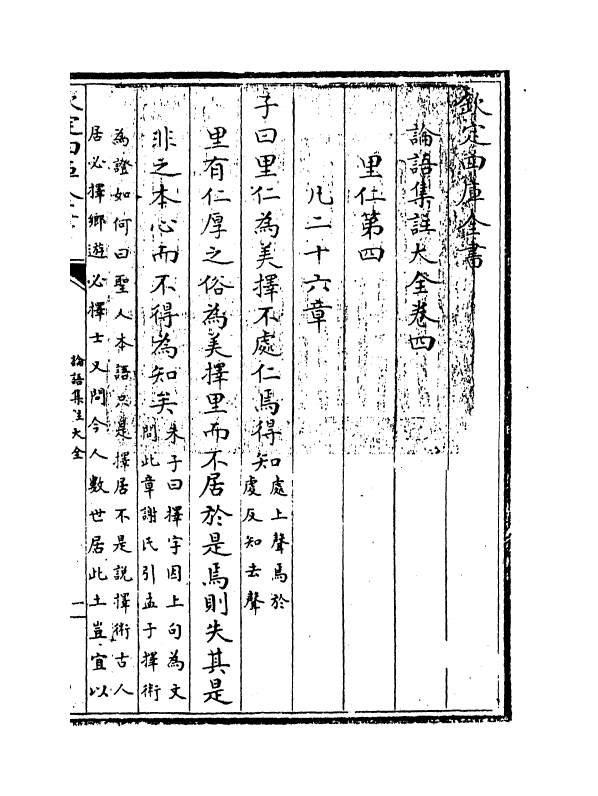 欽定四庫全書
論語集註大全卷四
里仁第四
凡二十六章
子曰里仁為美擇不處仁焉得知
處上聲焉於
虔反知去聲
里有仁厚之俗為美擇里而不居於是焉則失其是
非之本心而不得為知矣
朱子曰擇字因上句為文
問此章謝氏引孟子擇術
為證如何曰聖人本語只是擇居不是說擇術古人
居必擇鄉遊必擇士又問今人數世居此土豈宜以
欽定四庫全書
論語集註大全
一